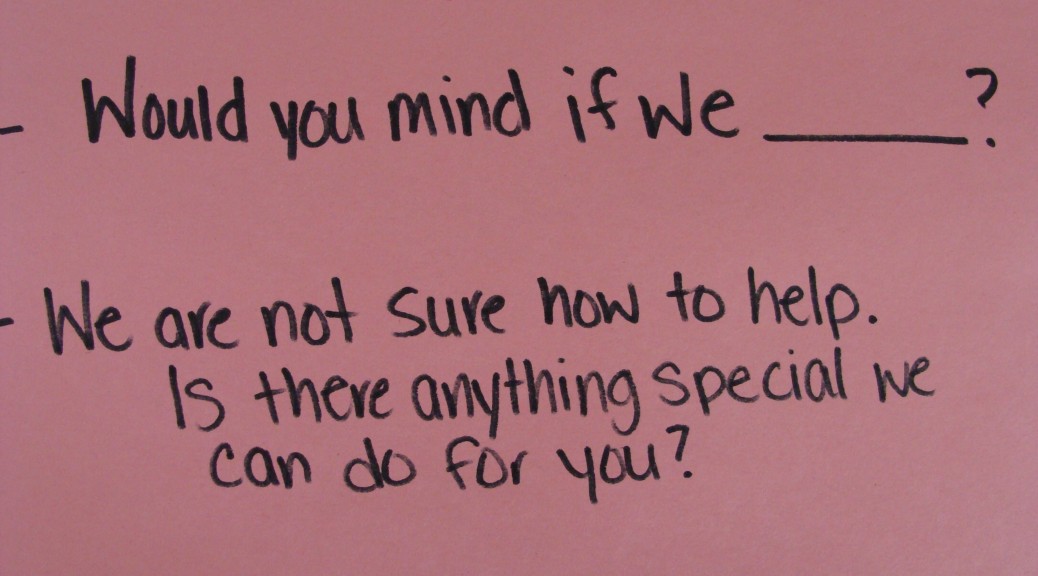 - Would you mind if we _____?
- We are not sure how to help.
Is there anything special we
can do for you?